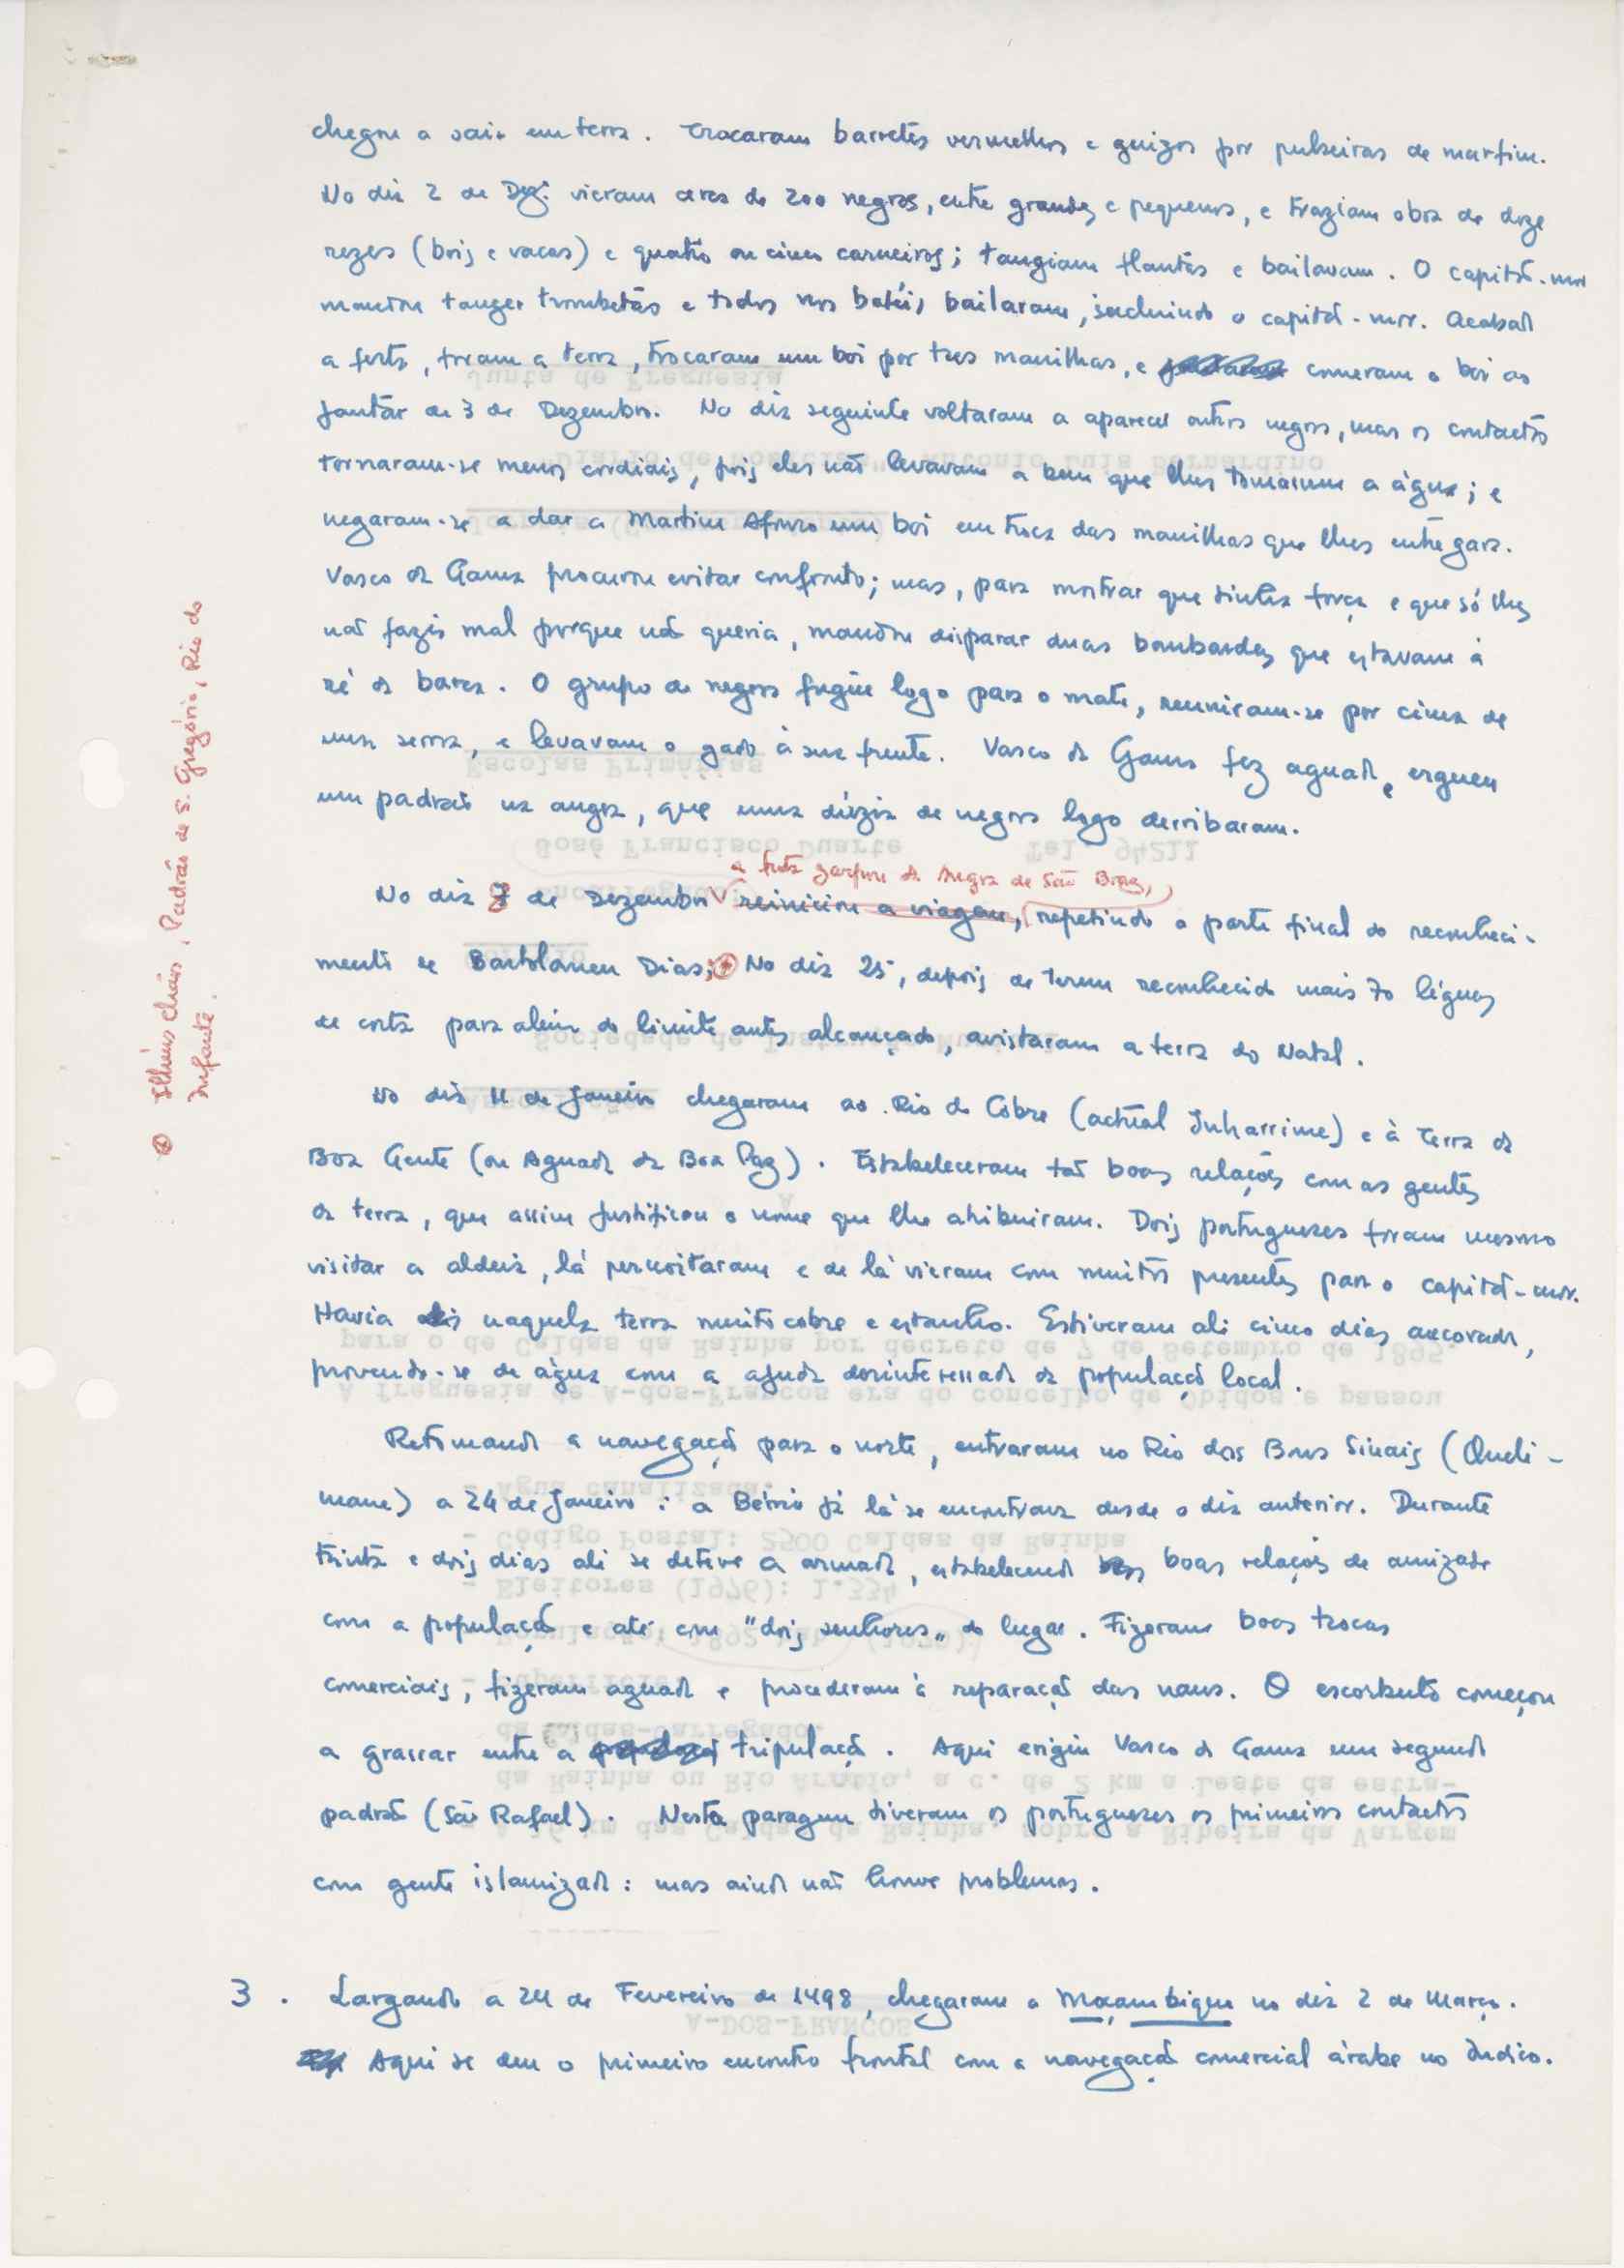 chegou a sair em terra. Trocaram barretes vermelhos e guizos por pulseiras de marfim.
No dia 2 de Dez. vieram cerca de 200 negros, entre grandes e pequenos, e traziam obra de doze
rezes (bois e vacas) e quatro ou cinco carneiros; tangiam flautas e bailavam. O capitão-mor
mandou tanger trombetas e todos nos batéis bailaram, incluindo o capitão-mor. Acabada
a festa, foram a terra, trocaram um boi por tres manilhas, e comeram o boi ao
jantar de 3 de Dezembro. No dia seguinte voltaram a aparecer outros negros, mas os contactos
tornaram-se menos cordiais, pois eles não levavam a bem que lhes tomassem a água; e
negaram-se a dar a Martim Afonso um boi em troca das manilhas que lhes entregara.
Vasco da Gama procurou evitar confronto; mas, para mostrar que tinha força e que só lhes
não fazia mal porque não queria, mandou disparar duas bombardas que estavam à
ré da barca. O grupo de negros fugiu logo para o mato, reuniram-se por cima de
uma serra, e levavam o gado à sua frente. Vasco da Gama fez aguada, e ergueu
um padrão na angra, que uma dúzia de negros logo derribaram.
a frota zarpou da Angra de São Braz,
No dia 8 de Dezembro reiniciou a viagem, repetindo a parte final do reconheci-
mento de Bartolomeu Dias; ⊕ No dia 25, depois de terem reconhecido mais 70 léguas
de costa para além do limite antes alcançado, avistaram a terra do Natal.
⊕ Ilhéus Chãos, Padrão de S. Gregório, Rio do
Infante.
No dia 11 de Janeiro chegaram ao Rio do Cobre (actual Inharrime) e à Terra da
Boa Gente (ou Aguada da Boa Paz). Estabeleceram tão boas relações com as gentes
da terra, que assim justificou o nome que lhe atribuiram. Dois portugueses foram mesmo
visitar a aldeia, lá pernoitaram e de lá vieram com muitos presentes para o capitão-mor.
Havia naquela terra muito cobre e estanho. Estiveram ali cinco dias ancorados,
provendo-se de água com a ajuda desinteressada da população local.
Retomando a navegação para o norte, entraram no Rio dos Bons Sinais (Queli-
mane) a 24 de Janeiro: a Bérrio já lá se encontrava desde o dia anterior. Durante
trinta e dois dias ali se deteve a armada, estabelecendo boas relações de amizade
com a população e até com "dois senhores" do lugar. Fizeram boas trocas
comerciais, fizeram aguada e procederam à reparação das naus. O escorbuto começou
a grassar entre a tripulação. Aqui erigiu Vasco da Gama um segundo
padrão (São Rafael). Nesta paragem tiveram os portugueses os primeiros contactos
com gente islamizada: mas ainda não houve problemas.
3. Largando a 24 de Fevereiro de 1498, chegaram a Moçambique no dia 2 de Março.
Aqui se deu o primeiro encontro frontal com a navegação comercial árabe no Índico.